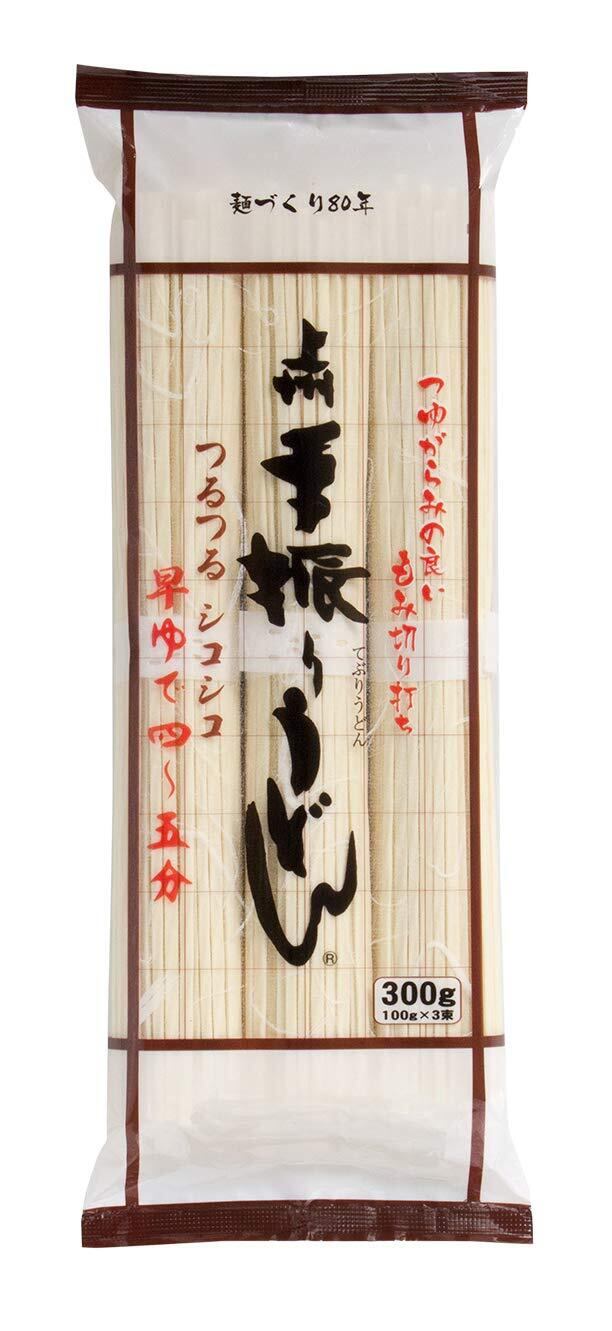 麺づくり80年
つゆがらみの良い
もみ切り打ち
上州手振りうどん®
てぶりうどん
つるつる シコシコ
早ゆで四〜五分
300g
100g×3束